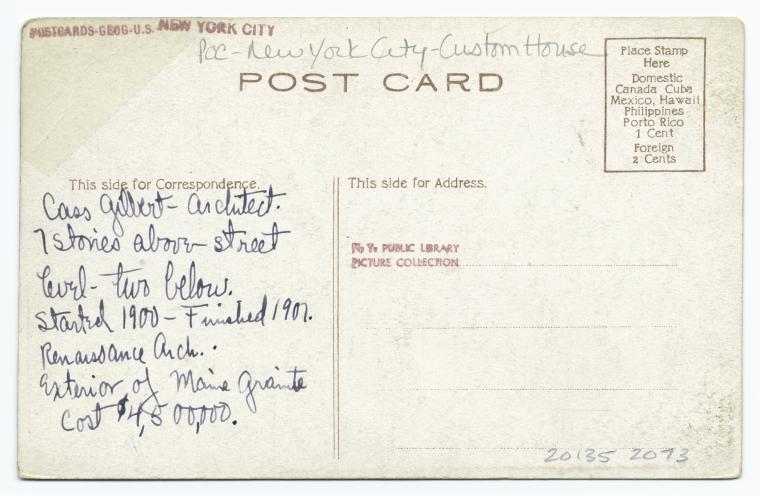 POSTCARDS-GEOG-U.S. NEW YORK CITY
Poc-New York City-Custom House
POST CARD
Place Stamp
Here
Domestic
Canada Cuba
Mexico, Hawaii
Philippines
Porto Rico
1 Cent
Foreign
2 Cents
This side for Correspondence.
Cass Gilbert - Architect.
7 stories above street
level - two below.
Started 1900 - Finished 1907.
Renaissance Arch..
Exterior of Maine granite
Cost $4,500,000.
This side for Address.
N. Y. PUBLIC LIBRARY
PICTURE COLLECTION
20135 2093